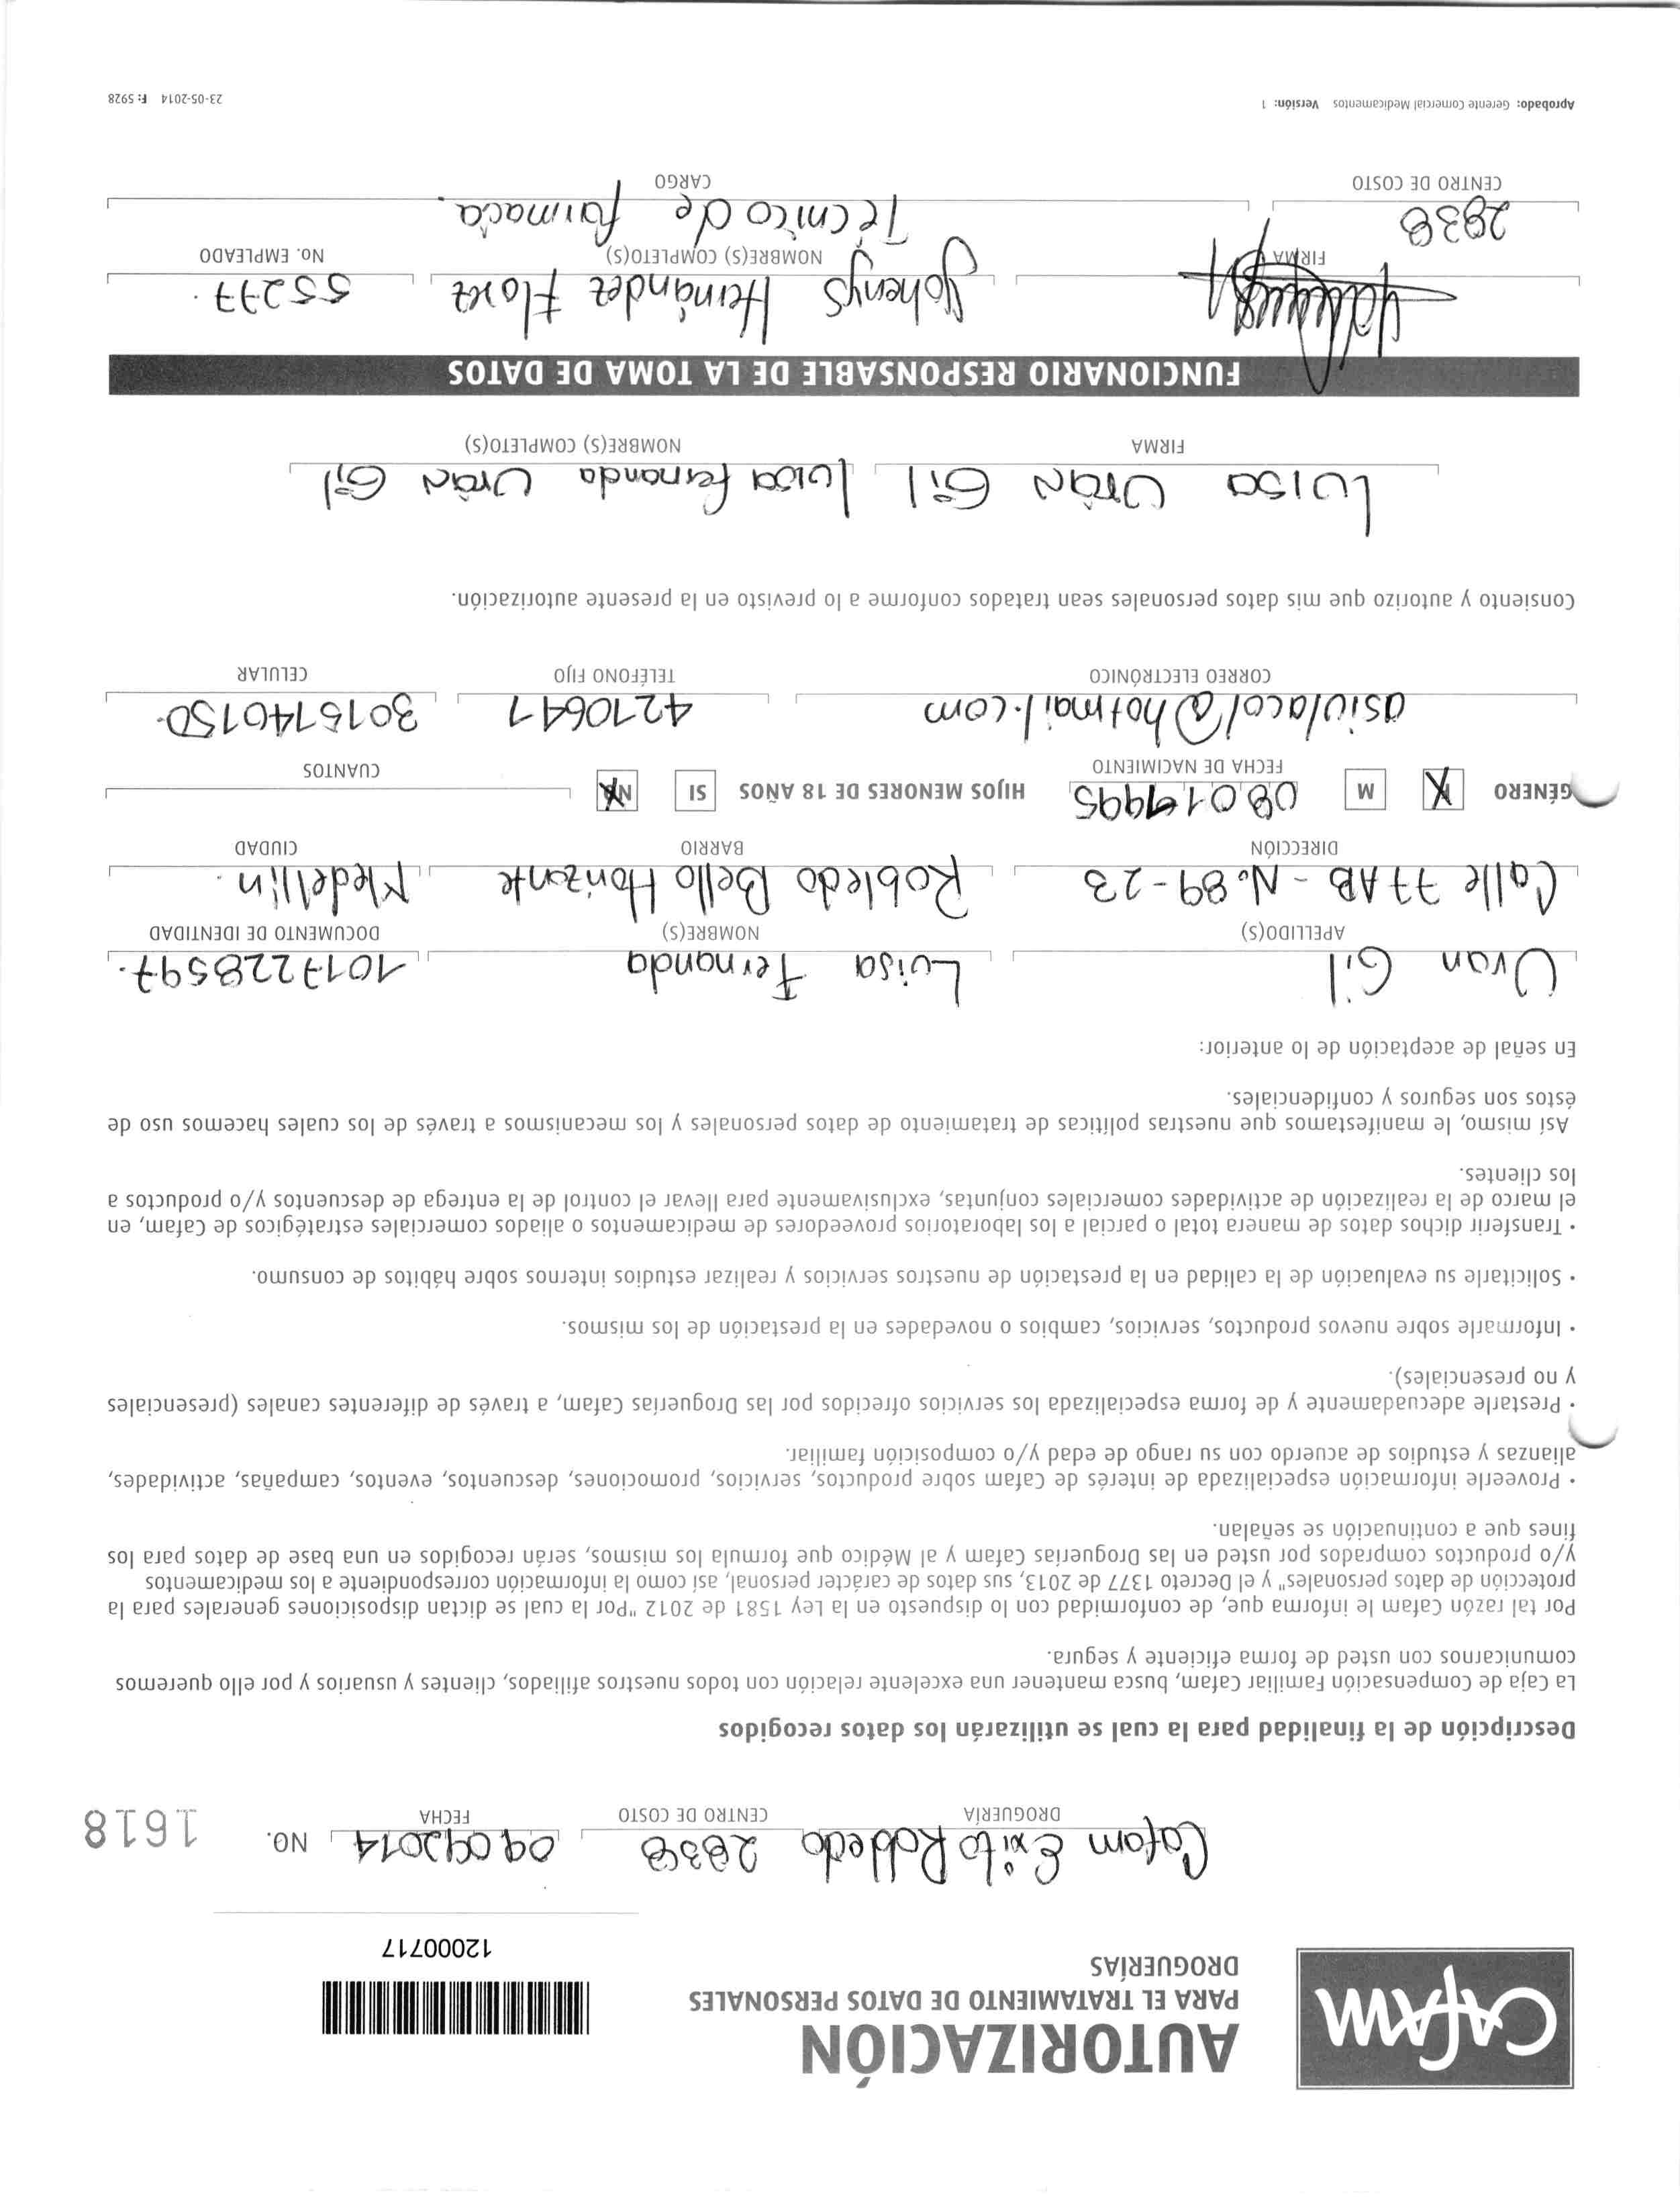 CAFAM
AUTORIZACIÓN
PARA EL TRATAMIENTO DE DATOS PERSONALES
DROGUERÍAS
12000717
Cafam Exito Robledo 2838 09092014 NO. 1618
DROGUERÍA CENTRO DE COSTO FECHA
Descripción de la finalidad para la cual se utilizarán los datos recogidos
La Caja de Compensación Familiar Cafam, busca mantener una excelente relación con todos nuestros afiliados, clientes y usuarios y por ello queremos
comunicarnos con usted de forma eficiente y segura.
Por tal razón Cafam le informa que, de conformidad con lo dispuesto en la Ley 1581 de 2012 "Por la cual se dictan disposiciones generales para la
protección de datos personales" y el Decreto 1377 de 2013, sus datos de carácter personal, así como la información correspondiente a los medicamentos
y/o productos comprados por usted en las Droguerías Cafam y al Médico que formula los mismos, serán recogidos en una base de datos para los
fines que a continuación se señalan.
• Proveerle información especializada de interés de Cafam sobre productos, servicios, promociones, descuentos, eventos, campañas, actividades,
alianzas y estudios de acuerdo con su rango de edad y/o composición familiar.
• Prestarle adecuadamente y de forma especializada los servicios ofrecidos por las Droguerías Cafam, a través de diferentes canales (presenciales
y no presenciales).
• Informarle sobre nuevos productos, servicios, cambios o novedades en la prestación de los mismos.
• Solicitarle su evaluación de la calidad en la prestación de nuestros servicios y realizar estudios internos sobre hábitos de consumo.
• Transferir dichos datos de manera total o parcial a los laboratorios proveedores de medicamentos o aliados comerciales estratégicos de Cafam, en
el marco de la realización de actividades comerciales conjuntas, exclusivamente para llevar el control de la entrega de descuentos y/o productos a
los clientes.
Así mismo, le manifestamos que nuestras políticas de tratamiento de datos personales y los mecanismos a través de los cuales hacemos uso de
éstos son seguros y confidenciales.
En señal de aceptación de lo anterior:
Uran Gil Luisa Fernanda 1017228597.
APELLIDO(S) NOMBRE(S) DOCUMENTO DE IDENTIDAD
Calle 77AB - No 89-23 Robledo Bello Horizonte Medellin.
DIRECCIÓN BARRIO CIUDAD
GÉNERO X M 08011995 HIJOS MENORES DE 18 AÑOS SI NO
FECHA DE NACIMIENTO CUANTOS
asiulacol@hotmail.com 4210641 3015740150.
CORREO ELECTRÓNICO TELÉFONO FIJO CELULAR
Consiento y autorizo que mis datos personales sean tratados conforme a lo previsto en la presente autorización.
Luisa Urán Gil luisa fernanda Urán Gil
FIRMA NOMBRE(S) COMPLETO(S)
FUNCIONARIO RESPONSABLE DE LA TOMA DE DATOS
Yohenys Hernández Florez 55277.
FIRMA NOMBRE(S) COMPLETO(S) No. EMPLEADO
2838 Técnico de farmacia.
CENTRO DE COSTO CARGO
Aprobado: Gerente Comercial Medicamentos Versión: 1 23-05-2014 F: 5928